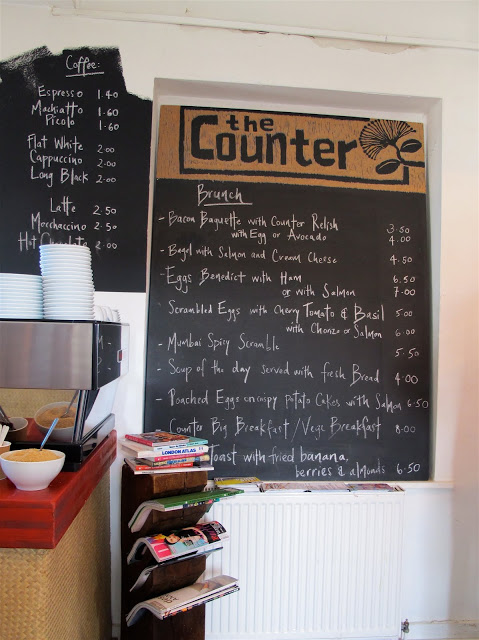 Coffee:
Espresso 1.40
Machiatto 1.60
Picolo 1.60
Flat White 2.00
Cappuccino 2.00
Long Black 2.00
Latte 2.50
Mocchaccino 2.50
Hot Chocolate 2.00
the
Counter
Brunch
- Bacon Baguette with Counter Relish 3.50
with Egg or Avocado 4.00
- Bagel with Salmon and Cream Cheese 4.50
- Eggs Benedict with Ham 6.50
or with Salmon 7.00
- Scrambled Eggs with Cherry Tomato & Basil 5.00
with Chorizo or Salmon 6.00
- Mumbai Spicy Scramble 5.50
- Soup of the day served with fresh Bread 4.00
- Poached Eggs on crispy potato Cakes with Salmon 6.50
Counter Big Breakfast / Vege Breakfast 8.00
Toast with fried banana,
berries & almonds 6.50
LONDON ATLAS